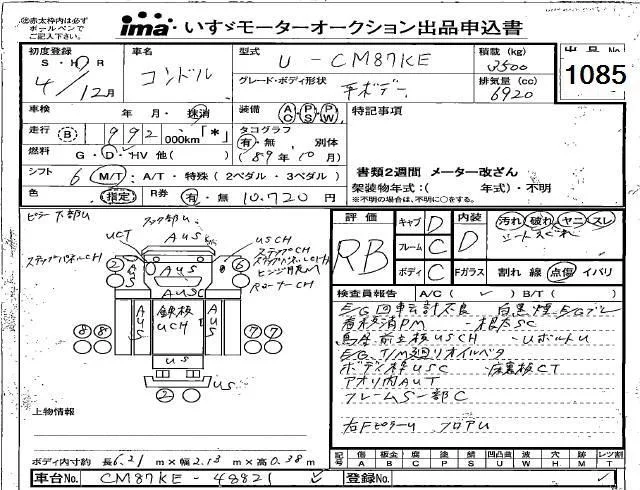 ㊟赤太枠内は必ず
ボールペンで
ご記入下さい。
ima・いすゞモーターオークション出品申込書
初度登録 S・H・R 4/12月
車名 コンドル
型式 U - CM87KE
グレード・ボディ形状 平ボデー
積載(kg) 3500
排気量(cc) 6920
出品No.
1085
車検 年 月・抹消
装備 AC・PS・PW
特記事項
走行 B 992 000km「*」
タコグラフ 有・無 別体
(89年10月)
燃料 G・D・HV 他( )
シフト 6 M/T・A/T・特殊(2ペダル・3ペダル)
書類2週間 メーター改ざん
架装物年式:( 年式)・不明
※不明の場合は、不明に○をする。
色 指定 R券 有・無 10,720円
評価 RB
キャブ D
フレーム C
ボディ C
内装 D
汚れ 破れ ヤニ スレ
シートスビレ
Fガラス 割れ 線 点傷 イバリ
検査員報告 A/C( ✓ ) B/T( )
E/G回転計不良 白黒煙 E/Gブレ
看板消PM -根太SC
鳥居前立板USCH -UボルトU
E/G,T/M廻りオイルベタ
ボディ枠USC -床裏板CT
アオリ内AUT
フレームS一部C
右Fピラーu フロアu
ピラー下部U
フック部U
UCT
AUS
USCH
ステップCH
ヒンジ
コーナーCH
2
6
AUS
AUSC
AUS
AUS
鉄板
UCH
AUS
AUS
8 8
7 7
US
US
2
上物情報
ボディ内寸約 長6.21m×幅2.13m×高0.38m
記号 傷A 板金B 腐C 塗P 錆S 凹凸曲U 波W 穴H 跡M レンズ割T
車台No. CM87KE - 48821
登録No.